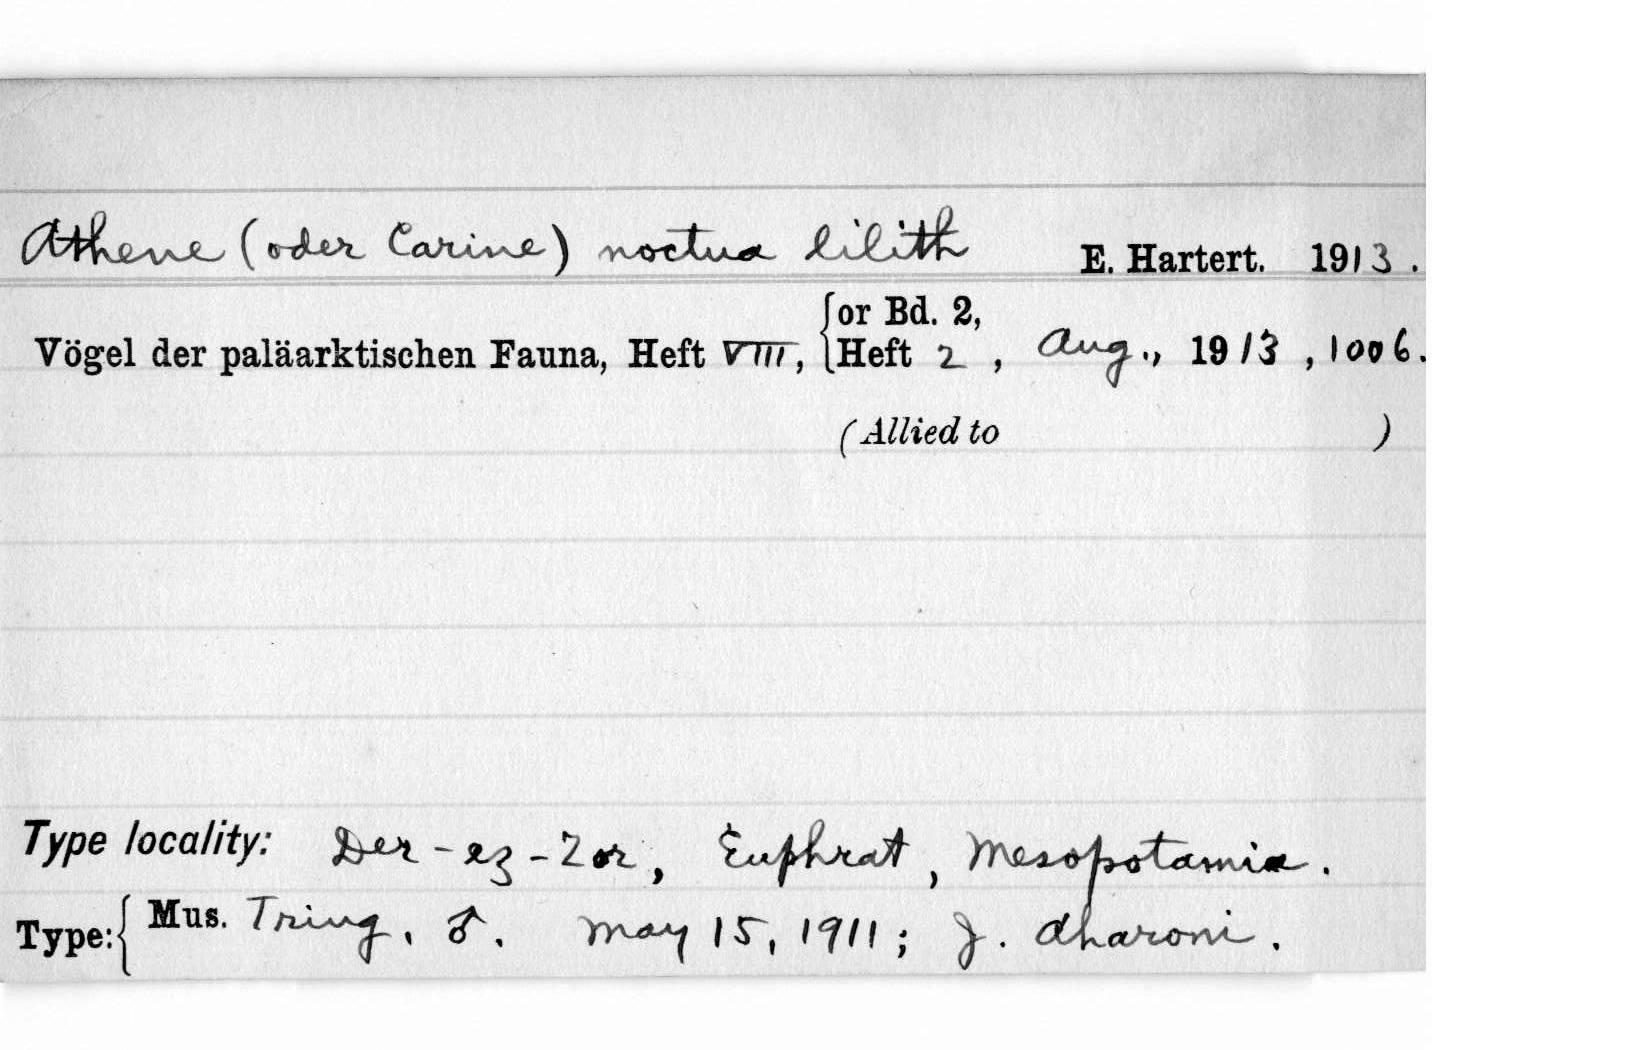 Athene (oder Carine) noctua lilith E. Hartert. 1913.
or Bd. 2,
Vögel der paläarktischen Fauna, Heft VIII, Heft 2, Aug., 1913, 1006.
(Allied to )
Type locality: Der-ez-Zor, Euphrat, Mesopotamia.
Type: Mus. Tring, ♂. May 15, 1911; J. Aharoni.